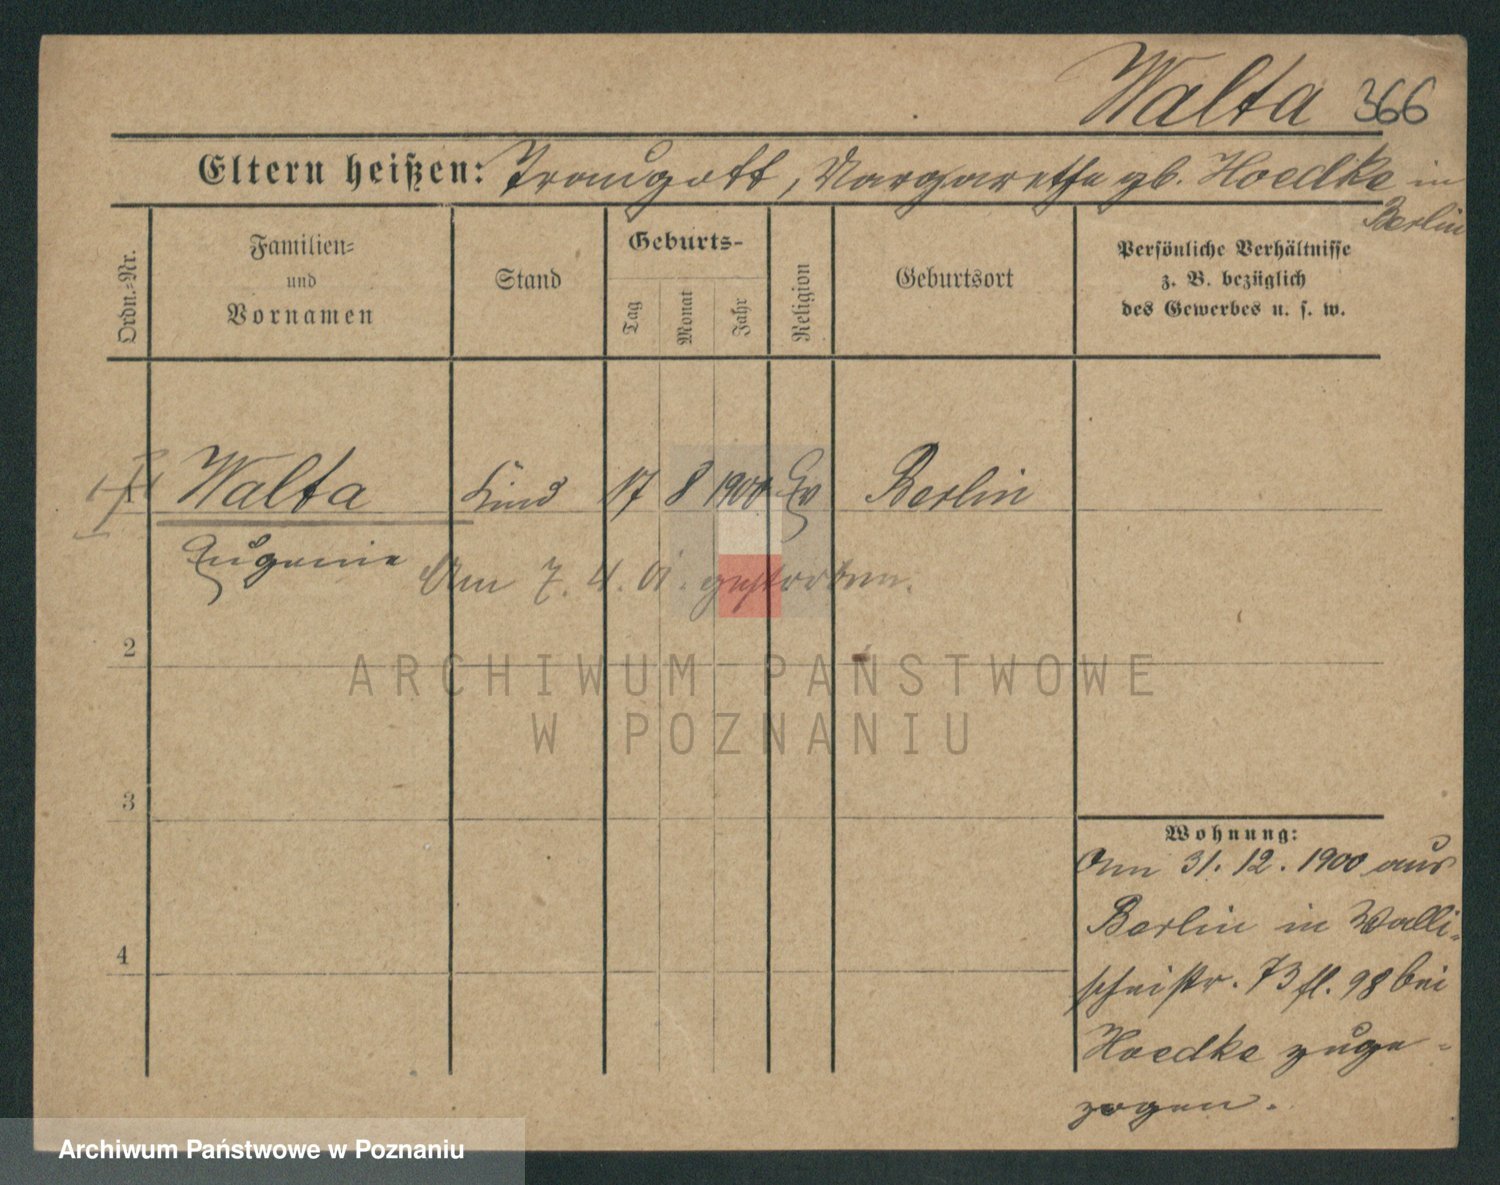 Walta 366
Eltern heißen: Traugott, Margarethe gb. Hoedke in
Berlin
Ordn.=Nr.
Familien=
und
Vornamen
Stand
Geburts-
Tag
Monat
Jahr
Religion
Geburtsort
Persönliche Verhältnisse
z. B. bezüglich
des Gewerbes u. s. w.
Walta Kind 17 8 1900 Ev Berlin
Eugenie
Am 7. 4. 01. gestorben.
2
ARCHIWUM PAŃSTWOWE
W POZNANIU
3
4
Wohnung:
Am 31. 12. 1900 aus
Berlin in Walli-
scheistr. 73 fl. 98 bei
Hoedke zuge-
zogen.
Archiwum Państwowe w Poznaniu